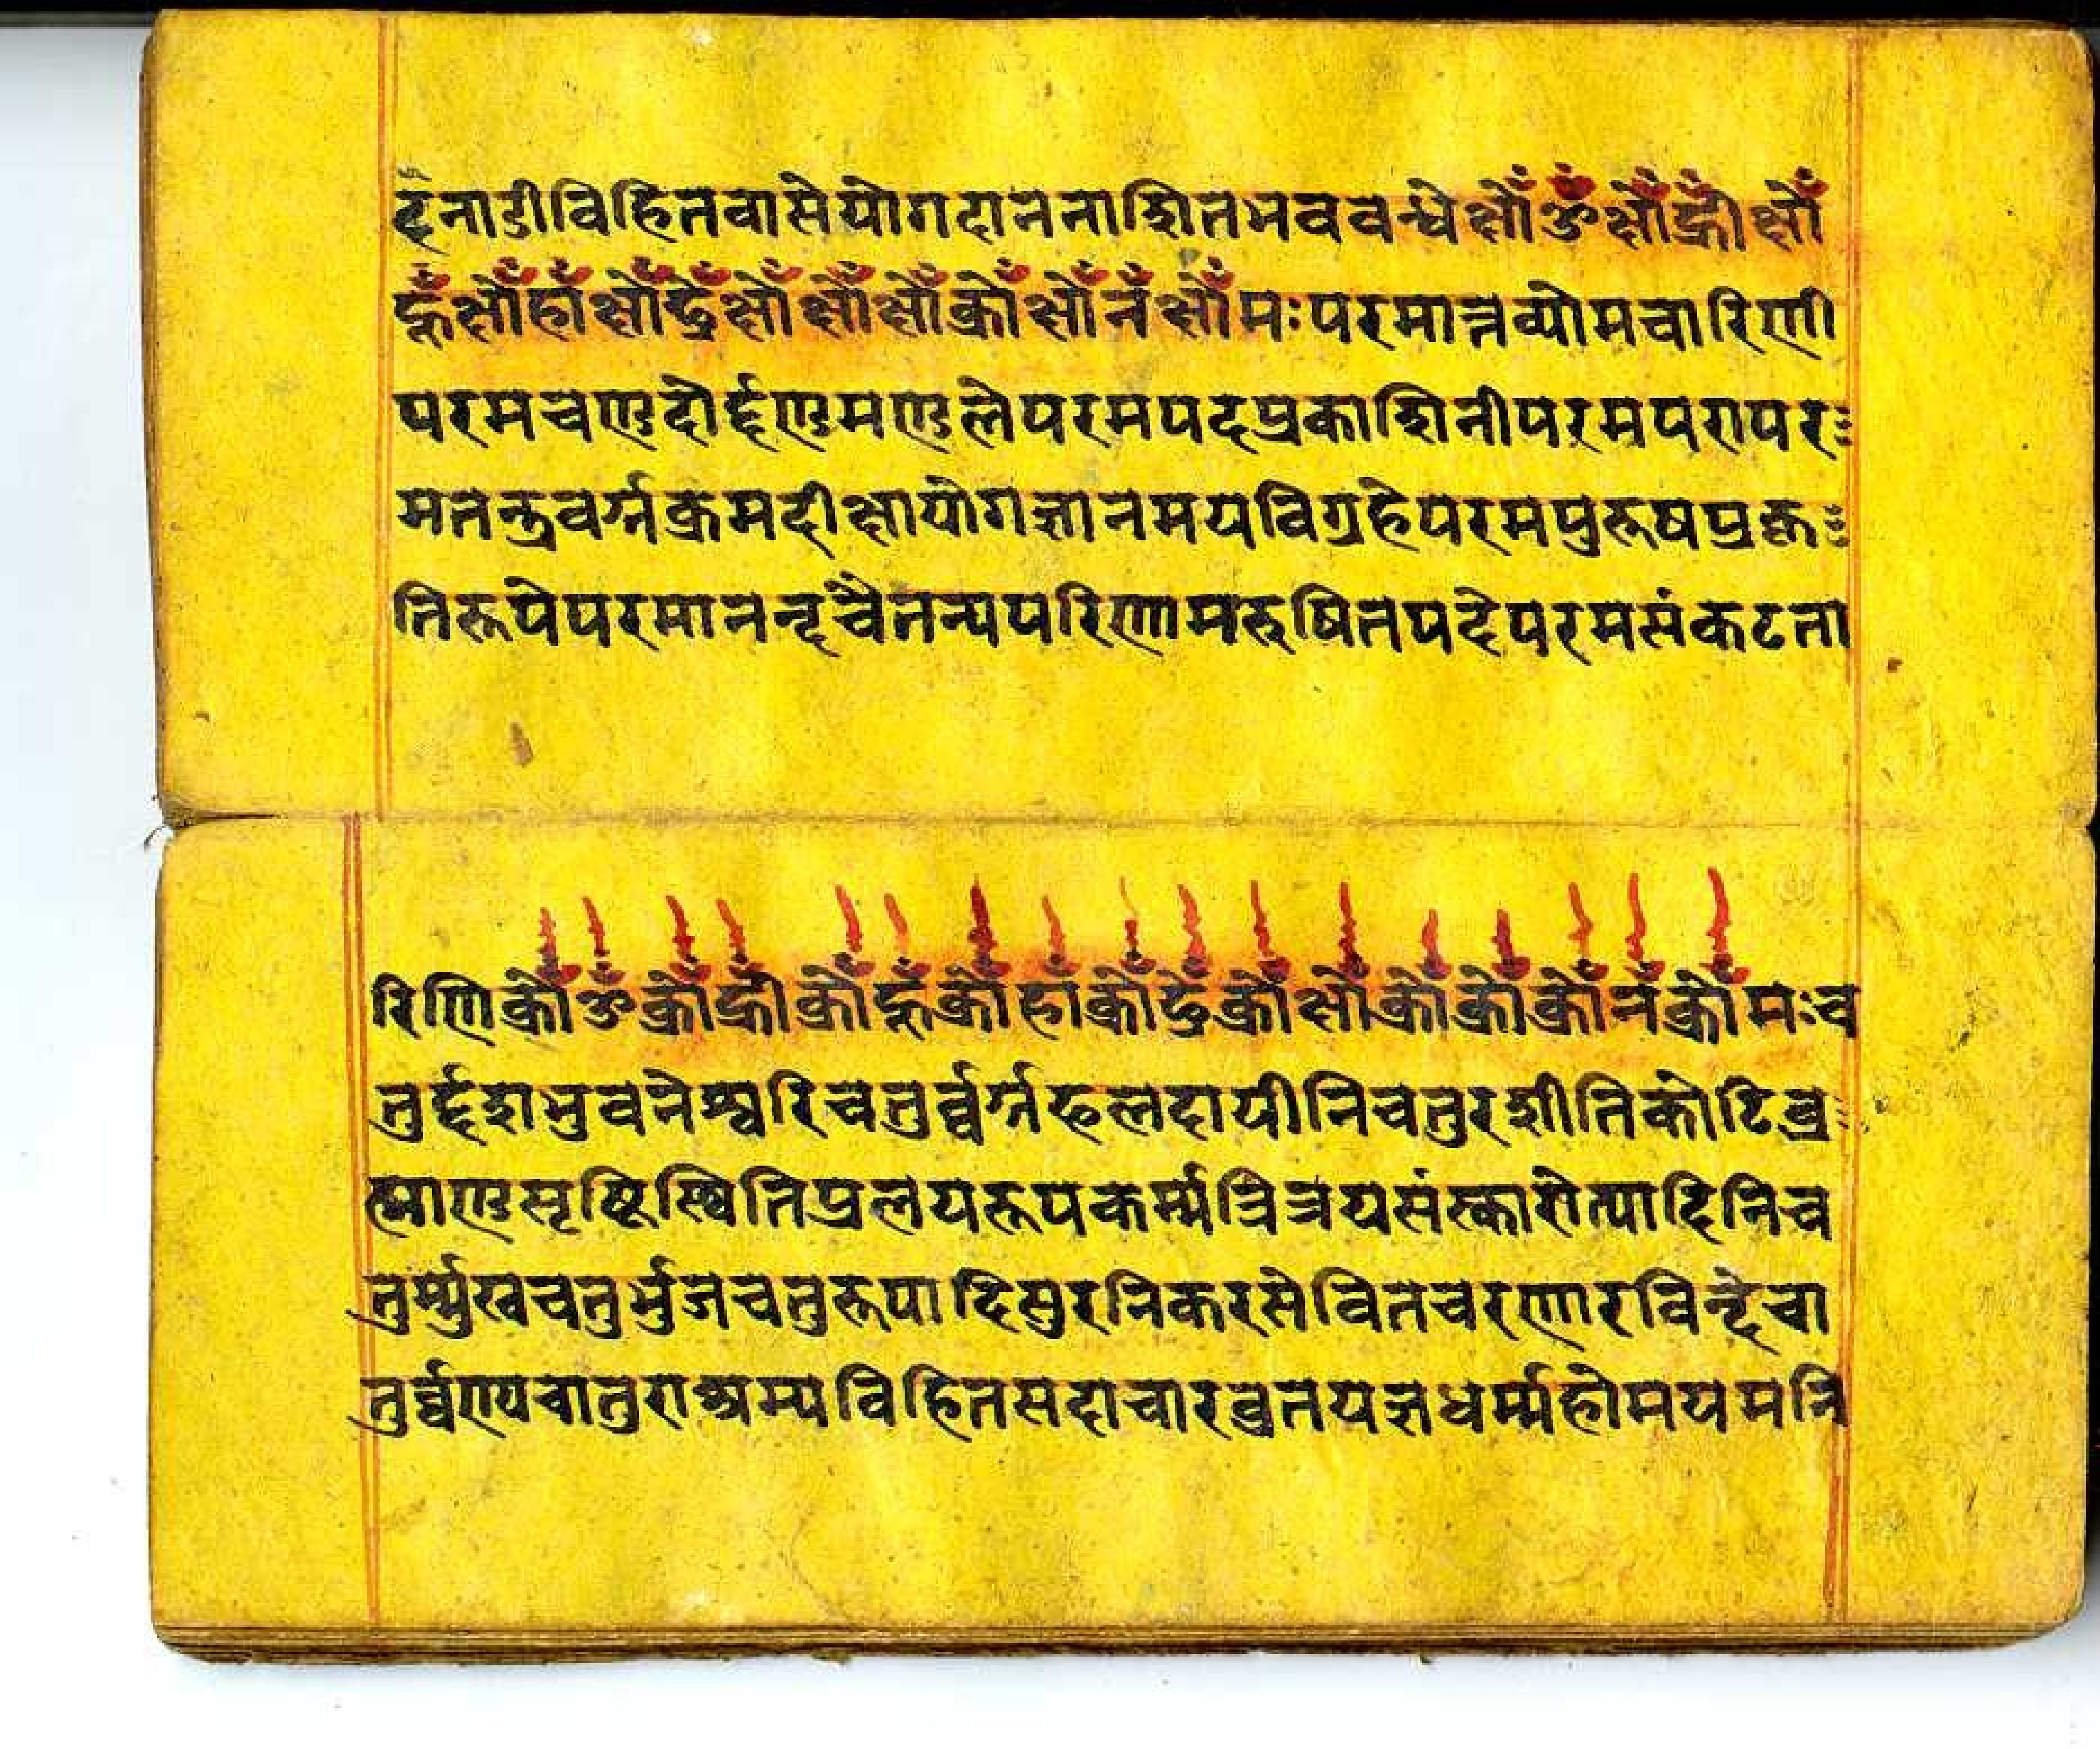 हनाडीविहितवासेयोगदाननाशितभववन्धेक्षौँॐक्षौँह्रीँक्षौँ
ह्रूँक्षौँहाँक्षौँद्रुँक्षौँक्षौँक्षौँक्रोँक्षौँनँक्षौँमःपरमात्नव्योमचारिणी
परमचण्डदोर्द्दण्डमण्डलेपरमपदप्रकाशिनीपरमपरापर
मतन्त्रवर्ग्गक्रमदीक्षायोगज्ञानमयविग्रहेपरमपुरूषप्रकृ
तिरूपेपरमानन्दचैतन्यपरिणामरुषितपदेपरमसंकटता
रिणिक्रौँॐक्रौँह्रीँक्रौँह्रूँक्रौँहाँक्रौँद्रुँक्रौँक्षौँक्रौँक्रोँक्रौँनँक्रौँमःच
तुर्द्दशभुवनेश्वरिचतुर्व्वर्ग्गफलदायीनिचतुरशीतिकोटिव्र
ह्माण्डसृष्टिस्थितिप्रलयरूपकर्म्मत्रित्रयसंस्कारोत्पादिनिच
तुर्म्मुखचतुर्भुजचतुरूपादिसुरनिकरसेवितचरणारविन्देचा
तुर्व्वण्यचातुराश्रम्यविहितसदाचारव्रतयज्ञधर्म्महोमयमनि